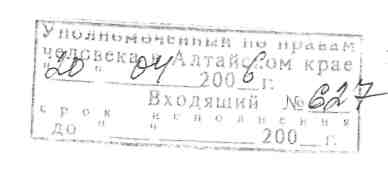 Уполномоченный по правам
человека в Алтайском крае
"20" 04 2006 г.
Входящий № 627
срок исполнения
до "___" ______ 200__ г.